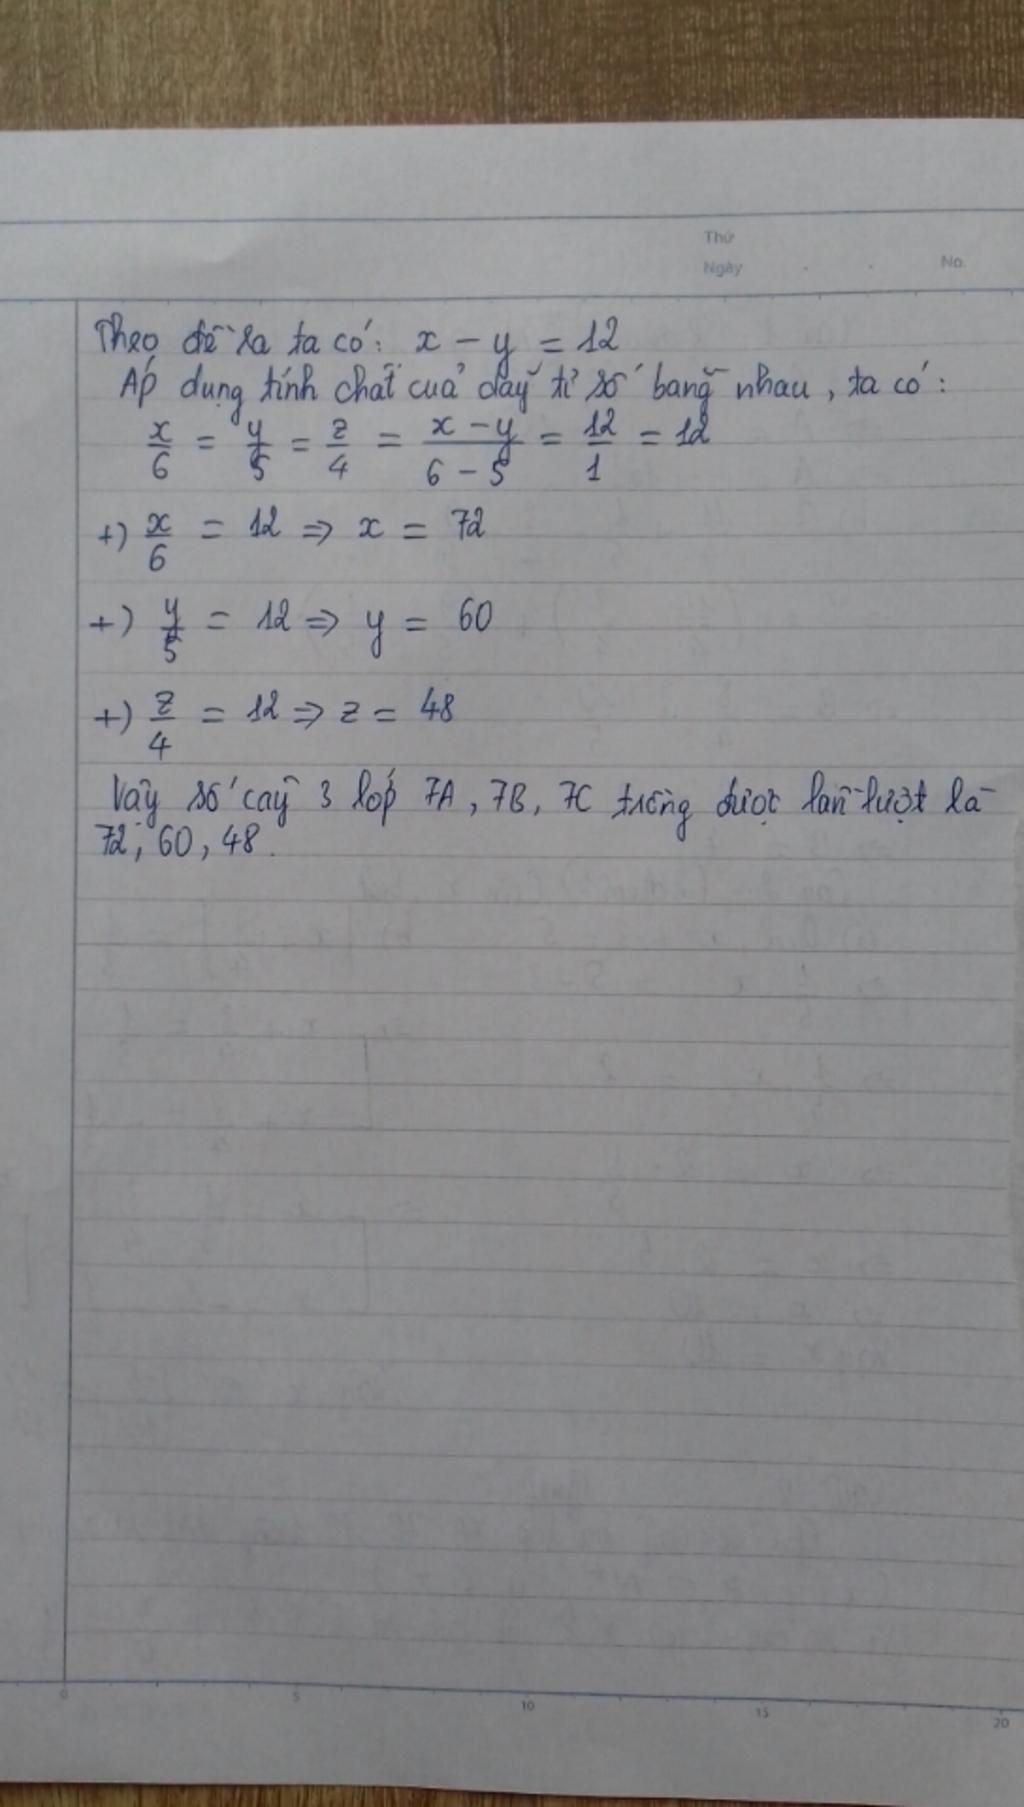 Thứ
Ngày . . No.
Theo đề ra ta có: x - y = 12
Áp dụng tính chất của dãy tỉ số bằng nhau, ta có:
x/6 = y/5 = z/4 = (x - y)/(6 - 5) = 12/1 = 12
+) x/6 = 12 => x = 72
+) y/5 = 12 => y = 60
+) z/4 = 12 => z = 48
Vậy số cây 3 lớp 7A, 7B, 7C trồng được lần lượt là
72, 60, 48.
0 5 10 15 20